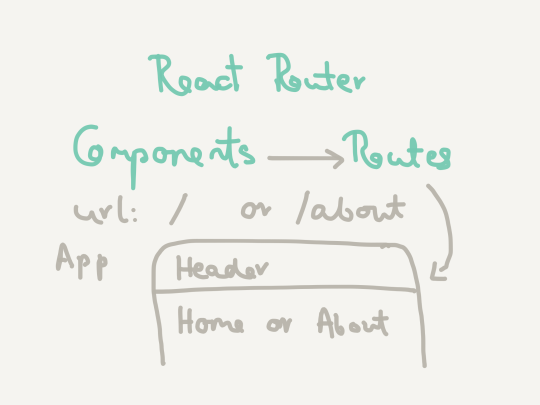 React Router
Components → Routes
url: / or /about
App
Header
Home or About